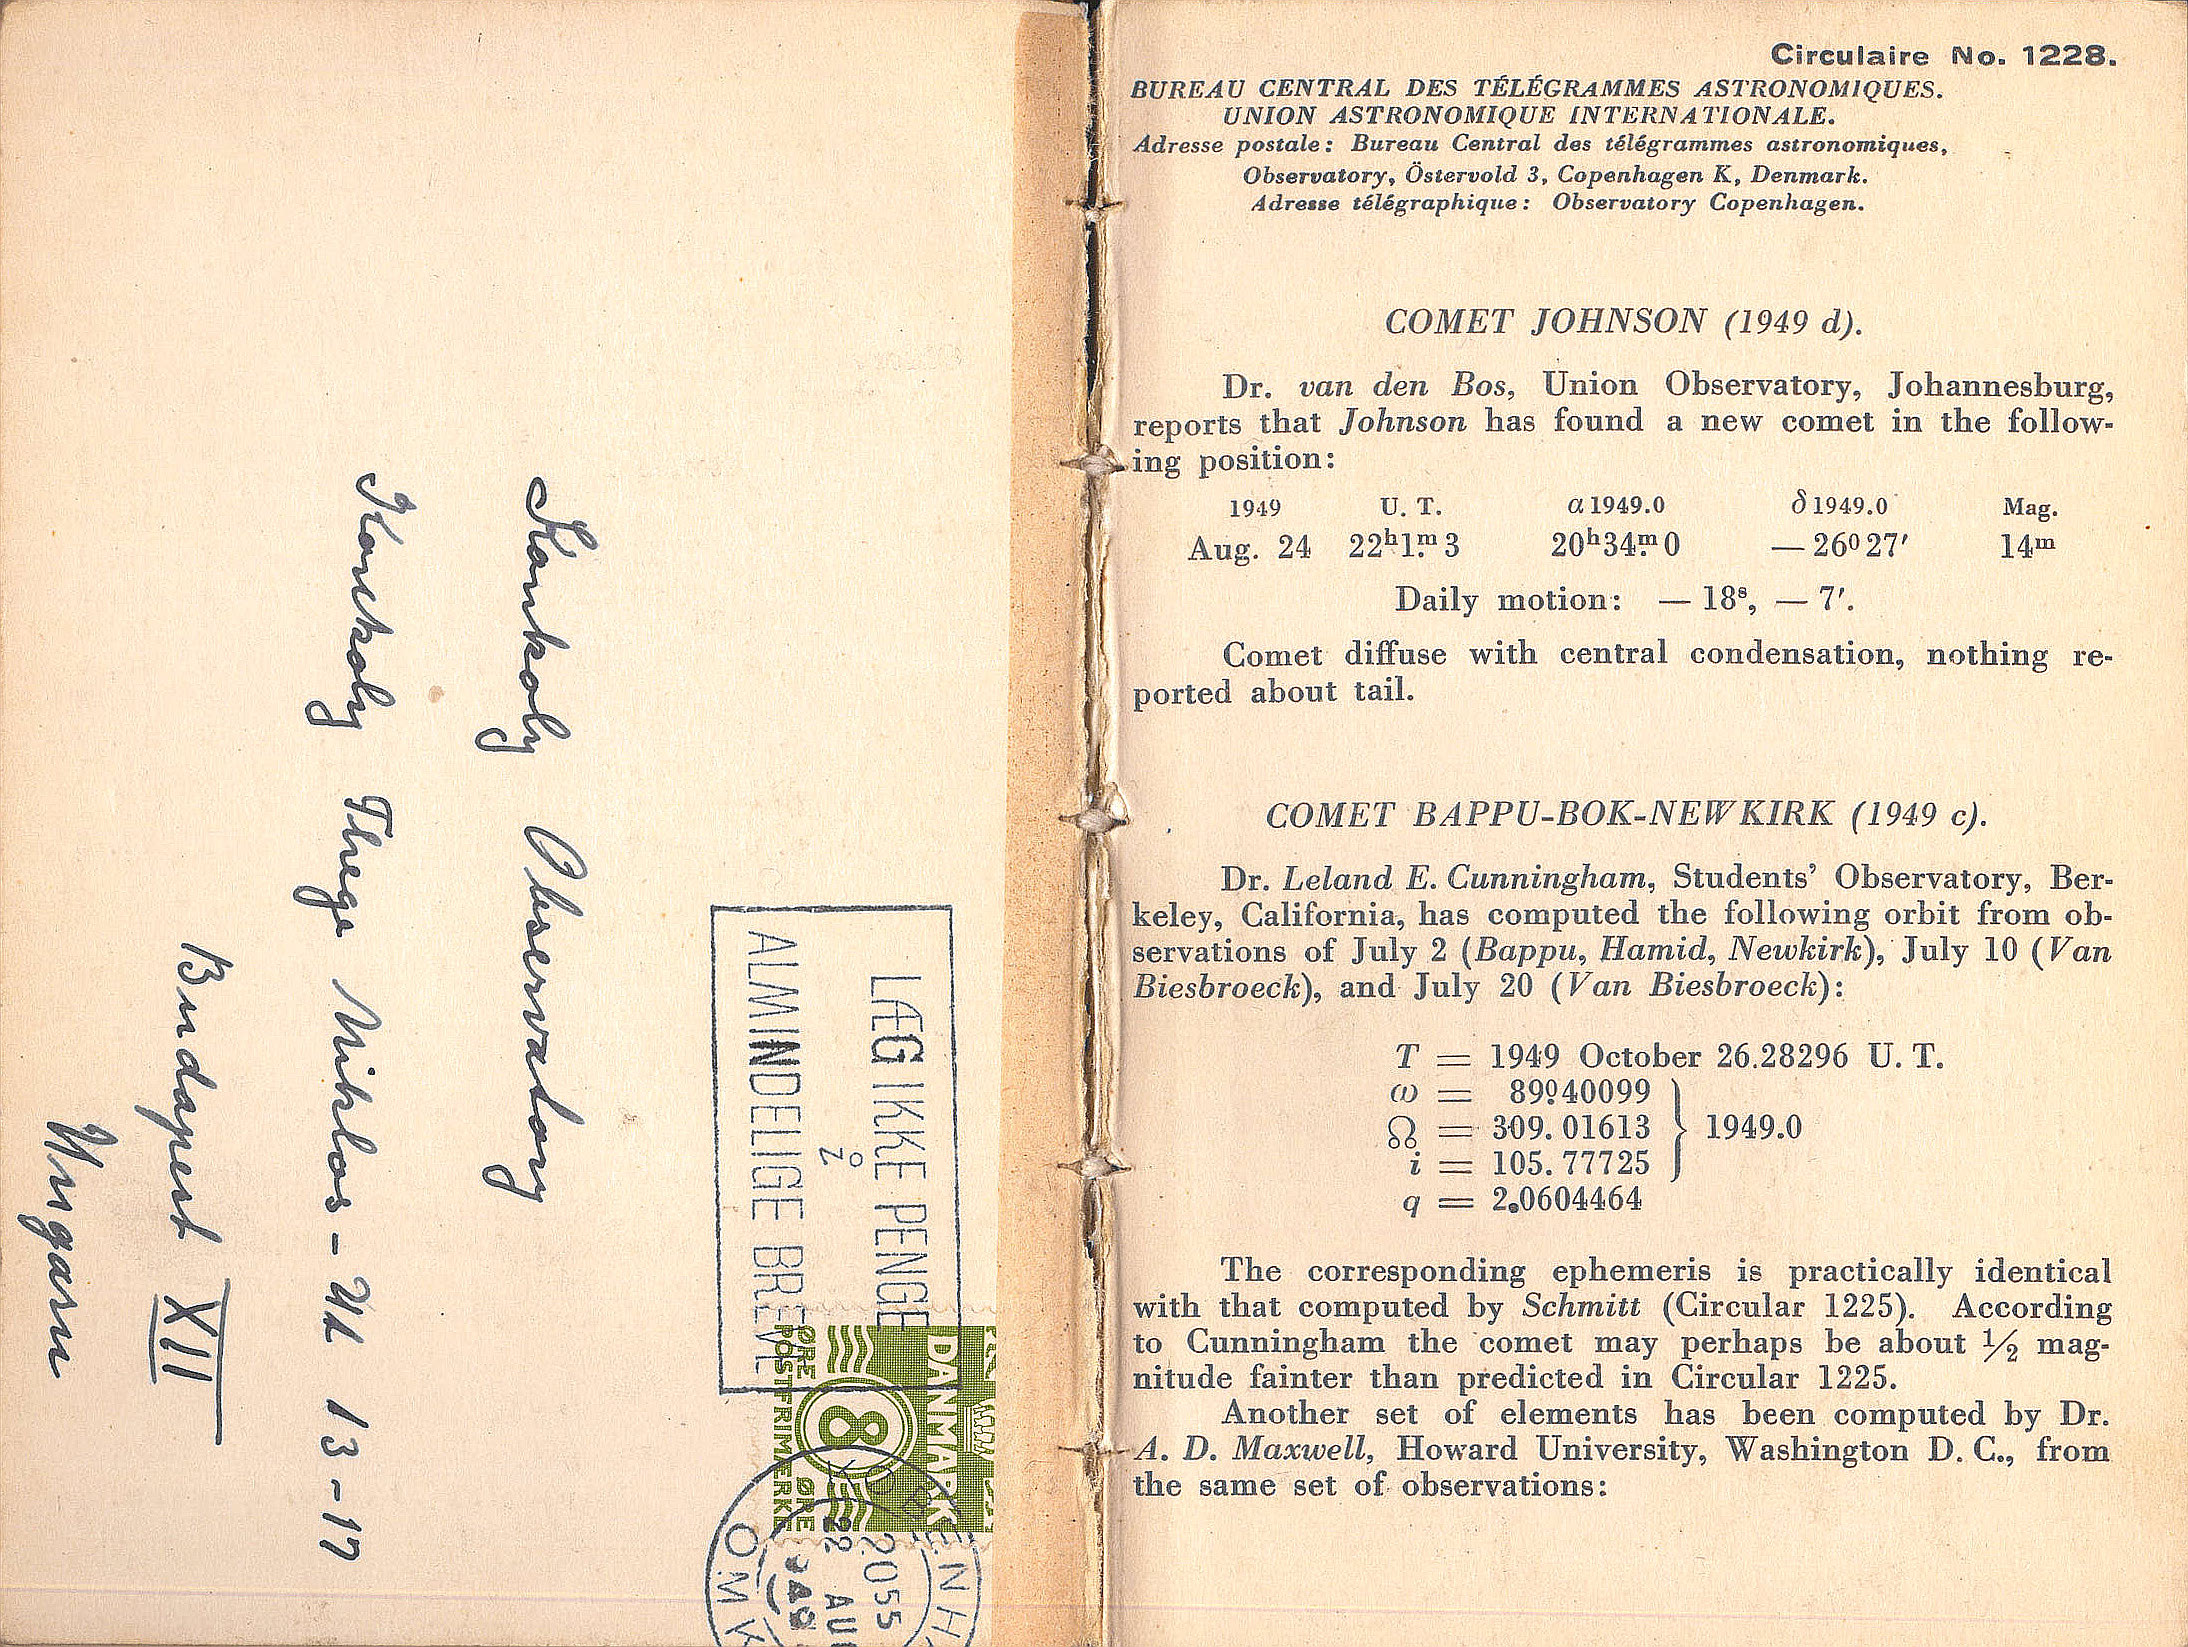 Konkoly Observatory
Konkoly Thege Miklos - Ut 13-17
Budapest XII
Ungarn
LÆG IKKE PENGE
I
ALMINDELIGE BREVE
DANMARK
8
ØRE ØRE
POSTFRIMÆRKE
2055
22 AUG
OMK
Circulaire No. 1228.
BUREAU CENTRAL DES TÉLÉGRAMMES ASTRONOMIQUES.
UNION ASTRONOMIQUE INTERNATIONALE.
Adresse postale: Bureau Central des télégrammes astronomiques,
Observatory, Östervold 3, Copenhagen K, Denmark.
Adresse télégraphique: Observatory Copenhagen.
COMET JOHNSON (1949 d).
Dr. van den Bos, Union Observatory, Johannesburg,
reports that Johnson has found a new comet in the follow-
ing position:
1949 U. T. α 1949.0 δ 1949.0 Mag.
Aug. 24 22ʰ1ᵐ.3 20ʰ34ᵐ.0 — 26°27′ 14ᵐ
Daily motion: — 18ˢ, — 7′.
Comet diffuse with central condensation, nothing re-
ported about tail.
COMET BAPPU-BOK-NEWKIRK (1949 c).
Dr. Leland E. Cunningham, Students’ Observatory, Ber-
keley, California, has computed the following orbit from ob-
servations of July 2 (Bappu, Hamid, Newkirk), July 10 (Van
Biesbroeck), and July 20 (Van Biesbroeck):
T = 1949 October 26.28296 U. T.
ω = 89°.40099
☊ = 309.01613 } 1949.0
i = 105.77725
q = 2.0604464
The corresponding ephemeris is practically identical
with that computed by Schmitt (Circular 1225). According
to Cunningham the comet may perhaps be about ½ mag-
nitude fainter than predicted in Circular 1225.
Another set of elements has been computed by Dr.
A. D. Maxwell, Howard University, Washington D. C., from
the same set of observations: